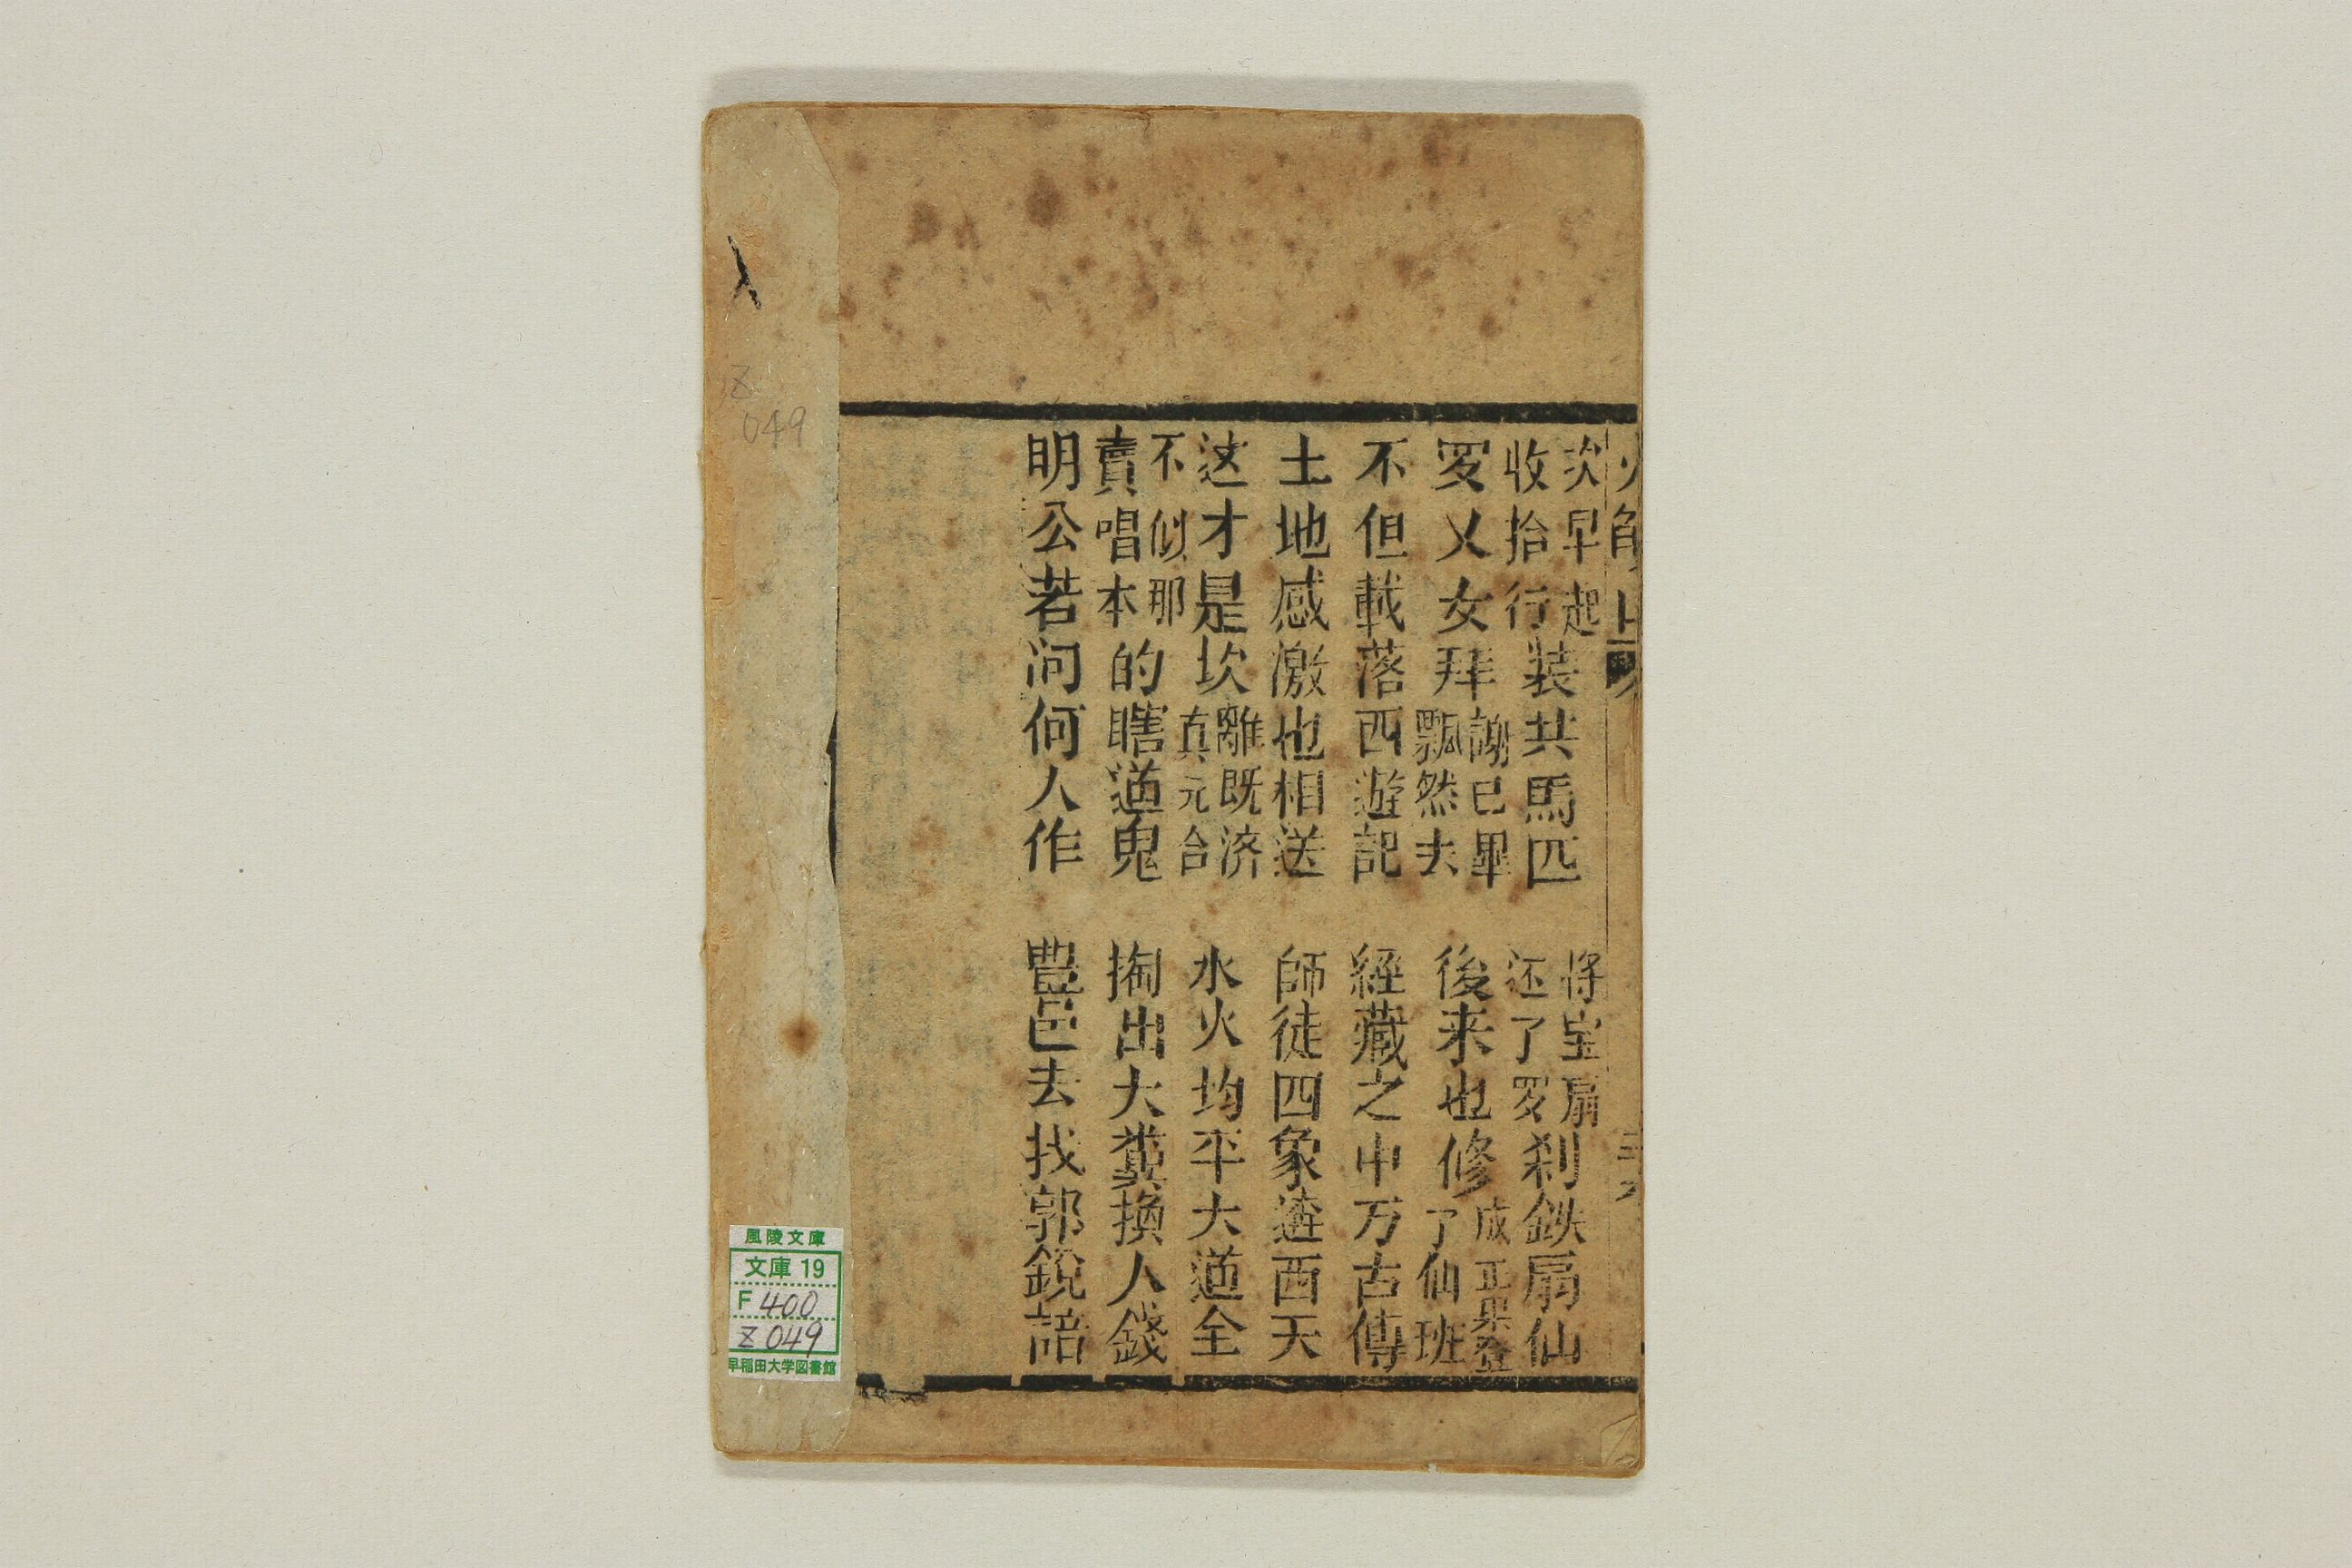 次早起收拾行装共馬匹
将宝扇还了罗刹鉄扇仙
罗乂女拜謝已畢飄然去
後来也修成正果登了仙班
不但載落西遊記
經藏之中万古傳
土地感激也相送
師徒四象逩西天
这才是坎離既济真元合
水火均平大道全
不似那賣唱本的瞎道鬼
掏出大糞換人錢
明公若问何人作
豊邑去找郭銳諳
Z
049
風陵文庫
文庫 19
F 400
Z 049
早稲田大学図書館